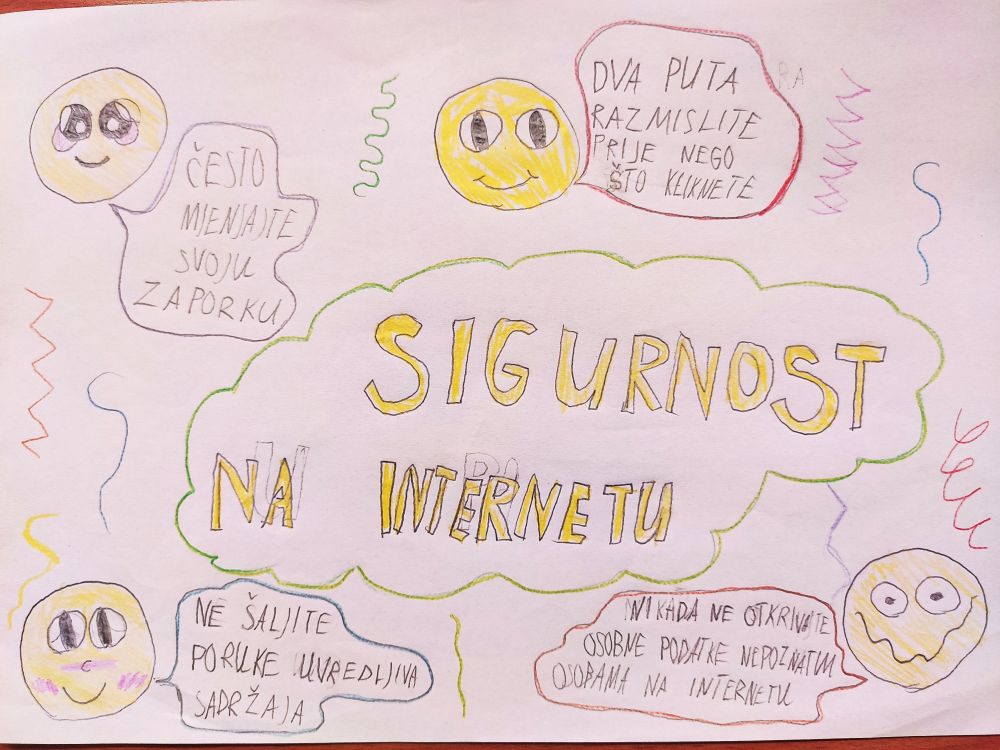 ČESTO
MJENJAJTE
SVOJU
ZAPORKU
DVA PUTA
RAZMISLITE
PRIJE NEGO
ŠTO KLIKNETE
SIGURNOST
NA INTERNETU
NE ŠALJITE
PORUKE UVREDLJIVA
SADRŽAJA
NIKADA NE OTKRIVAJTE
OSOBNE PODATKE NEPOZNATIM
OSOBAMA NA INTERNETU